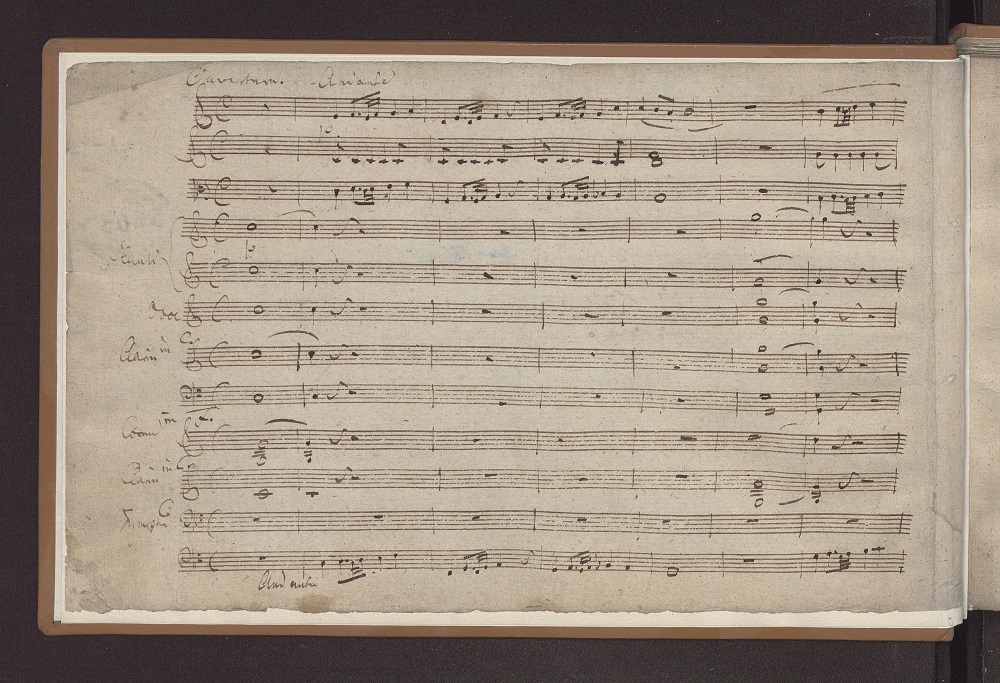 Ouvertura. Andante
Flauti
Oboe
Clarin in C
Corni in C.
Clarin in C
Timpani C
Andante